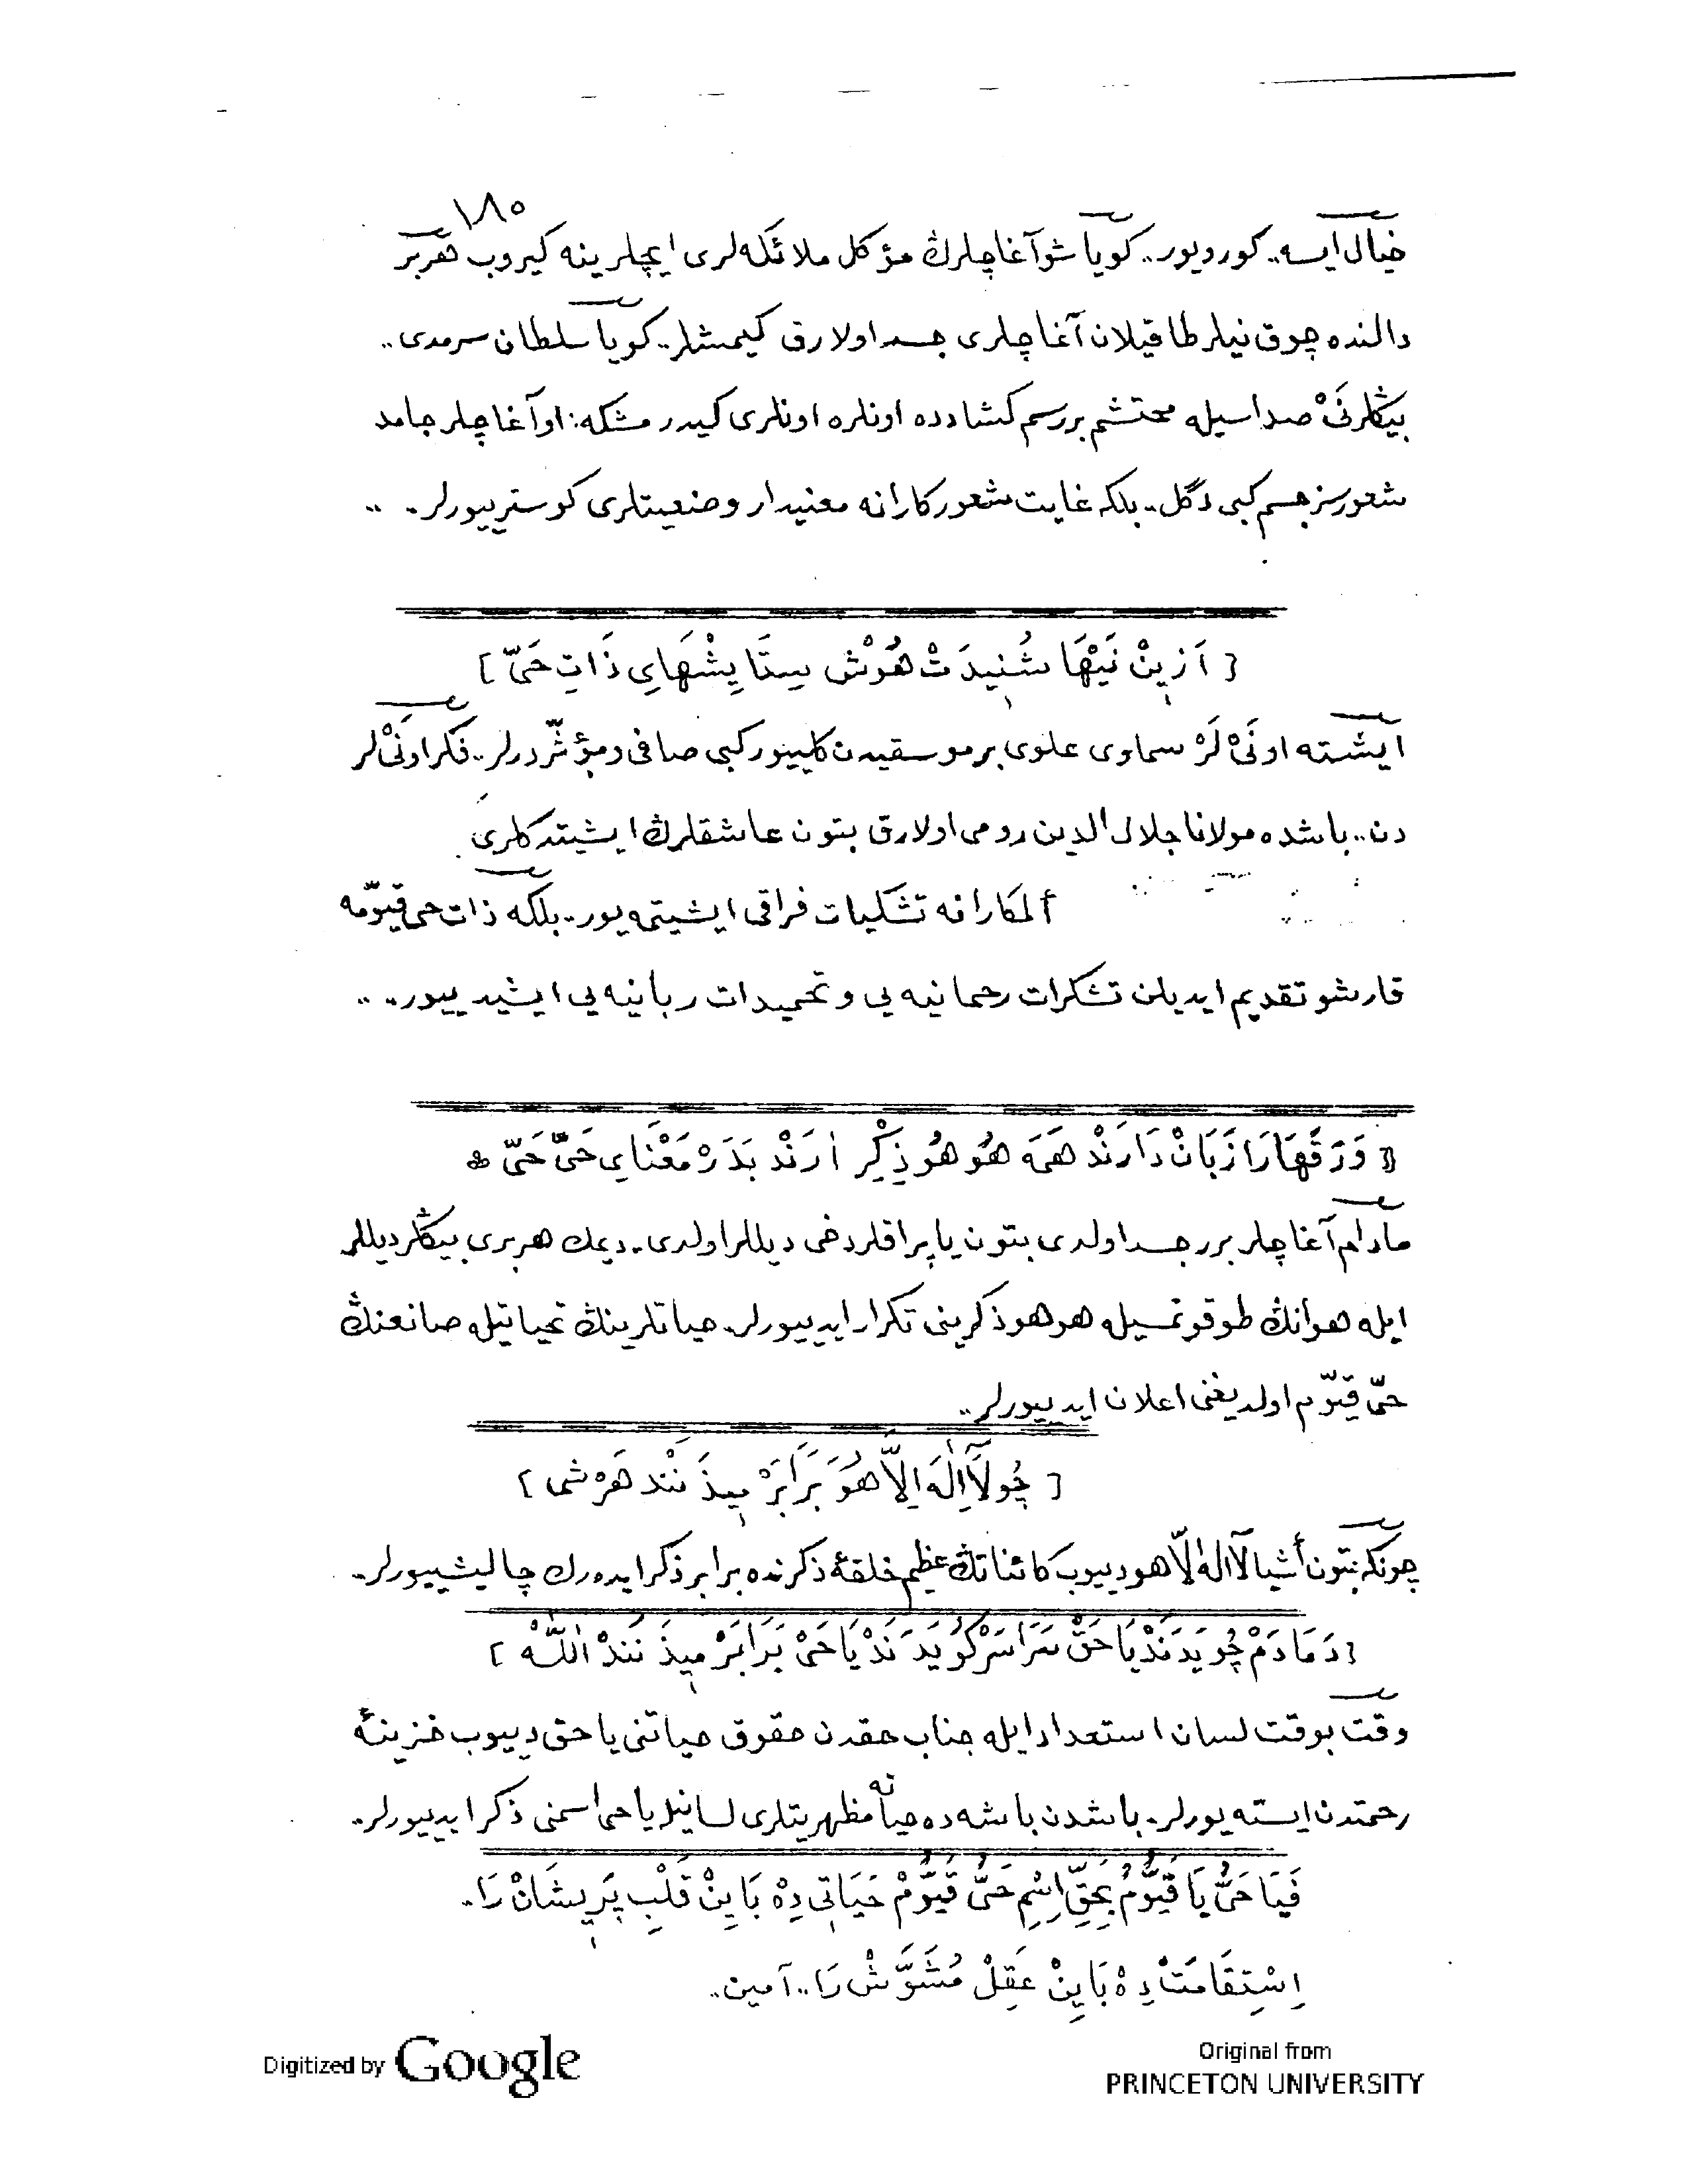 ١٨٥
خيال ايسه.. كورويور.. كويا شو آغاچلرڭ مؤكل ملائكه‌لرى ايچلرينه كيروب هربر
دالنده چوق نيلر طاقيلان آغاچلرى جسد اولارق كيمشلر.. كويا سلطان سرمدى..
بيڭلر نَىْ صداسيله محتشم بر رسم كشادده اونلره اونلرى كيدرمشكه: او آغاچلر جامد
شعورسز جسم كبى دگل.. بلكه غايت شعوركارانه معنيدار وضعيتلرى كوسترييورلر. ..
[ اَزِينْ نَيْهَا شُنِيدَتْ هُوْشْ سِتَايِشْهَاىِ ذَاتِ حَىّ ]
ايشته او نَىْ لَرْ سماوى علوى بر موسقيدن كلييور كبى صافى ومؤثّردرلر.. فكر او نَىْ لر
دن.. باشده مولانا جلال الدين رومى اولارق بتون عاشقلرڭ ايشيتدكلرى
ألمكارانه تشكيات فراقى ايشيتمه‌يور.. بلكه ذات حى قيّومه
قارشو تقديم ايديلن تشكرات رحمانيه يى و تحميدات ربانيه يى ايشيدييور.. ..
[ وَرَقْهَارَا زَبَانْ دَارَنْدْ هَمَه هُو هُو ذِكْرِ اٰرَنْدْ بَدَرْ مَعْنَاىِ حَىُّ حَىّ ]
مادام آغاچلر برر جسد اولدى بتون ياپراقلر دخى ديللر اولدى.. ديمك هربرى بيڭلر ديللر
ايله هوانڭ طوقونمسيله هو هو ذكرينى تكرار ايدييورلر. حياتلرينڭ تحياتيله صانعنڭ
حىّ قيّوم اولديغنى اعلان ايدييورلر..
[ چُو لَآاِلٰهَ اِلَّا هُوَ بَرَابَرْ مِيذَنَنْد هَرْ شَى ]
چونكه بتون أشيا لَآاله اِلّا هو دييوب كائناتڭ عظيم خلقۀ ذكرنده برابر ذكر ايده‌رك چاليشييورلر..
[ دَمَادَمْ جُويَدَنْدْ يَا حَقْ سَرَاسَرْ كُويَدَنْدْ يَا حَىْ بَرَابَرْ مِيذَنَنْدْ اَللّٰهْ ]
وقت بوقت لسان استعداد ايله جناب حقدن حقوق حياتنى يا حق دييوب خزينۀ
رحمتدن ايسته‌يورلر. باشدن باشه ده حياته مظهريتلرى لسانيله يا حى اسمنى ذكر ايدييورلر..
فَيَا حَىُّ يَا قَيُّومُ بِحَقِّ اِسْمِ حَىُّ قَيُّومْ حَيَاتِى دِهْ بَايِنْ قَلْبِ پَرِيشَانْ رَا..
اِسْتِقَامَتْ دِهْ بَايِنْ عَقِلْ مُشَوَّشْ رَا.. آمين..
Digitized by Google
Original from
PRINCETON UNIVERSITY